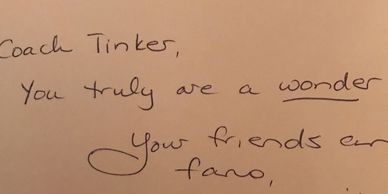 Coach Tinker,
You truly are a wonder
Your friends
fans,